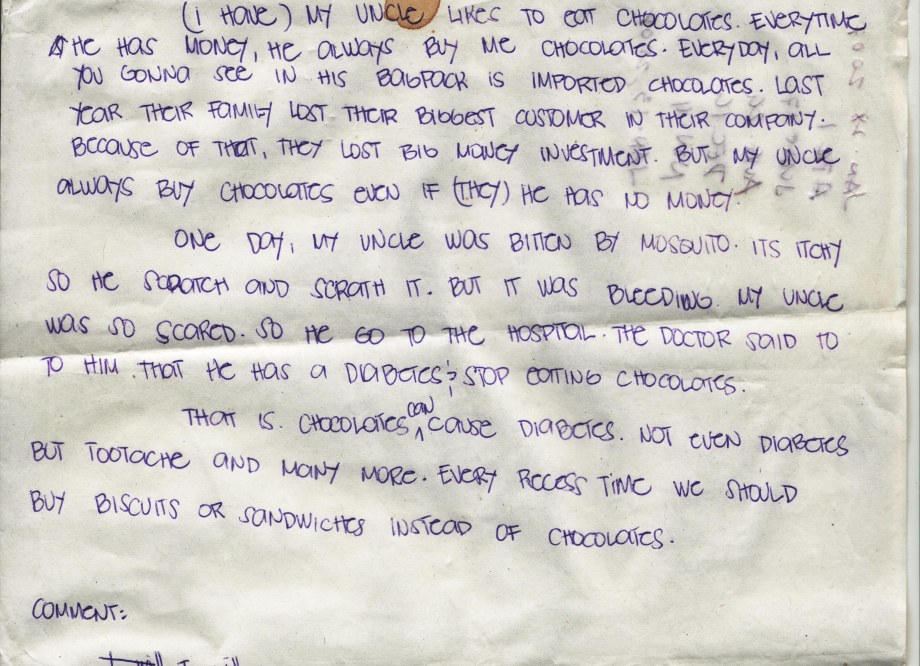 (I HAVE) MY UNCLE LIKES TO EAT CHOCOLATES. EVERYTIME
HE HAS MONEY, HE ALWAYS BUY ME CHOCOLATES. EVERYDAY, ALL
YOU GONNA SEE IN HIS BAGPACK IS IMPORTED CHOCOLATES. LAST
YEAR THEIR FAMILY LOST THEIR BIGGEST CUSTOMER IN THEIR COMPANY.
BECAUSE OF THAT, THEY LOST BIG MONEY INVESTMENT. BUT MY UNCLE
ALWAYS BUY CHOCOLATES EVEN IF (THEY) HE HAS NO MONEY.
ONE DAY, MY UNCLE WAS BITTEN BY MOSQUITO. ITS ITCHY
SO HE SCRATCH AND SCRATH IT. BUT IT WAS BLEEDING. MY UNCLE
WAS SO SCARED. SO HE GO TO THE HOSPITAL. THE DOCTOR SAID TO
TO HIM THAT HE HAS A DIABETES; STOP EATING CHOCOLATES.
THAT IS. CHOCOLATES CAN CAUSE DIABETES. NOT EVEN DIABETES
BUT TOOTACHE AND MANY MORE. EVERY RECESS TIME WE SHOULD
BUY BISCUITS OR SANDWICHES INSTEAD OF CHOCOLATES.
COMMENT: